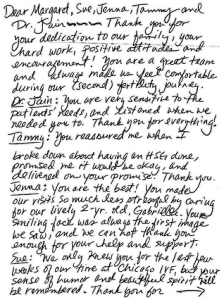 Dear Margard, Sue, Jenna, Tammy and
Dr. Jain — Thank you for
your dedication to our family, your
hard work, positive attitudes and
encouragement! You are a great team
and always made us feel comfortable
during our (second) fertility journey.
Dr. Jain: You are very sensitive to the
patients' needs, and listened when we
needed you to. Thank you for everything!
Tammy: You reassured me when I
broke down about having an HSG done,
promised me it would be okay, and
delivered on your promise! Thank you.
Jenna: You are the best! You made
our visits so much less stressful by caring
for our lively 2 yr. old, Gabrielle. Your
smiling face was always the first image
we saw, and we can not thank you
enough for your help and support.
Sue: We only knew you for the last few
weeks of our time at Chicago IVF, but your
sense of humor and beautiful spirit will
be remembered. Thank you for →